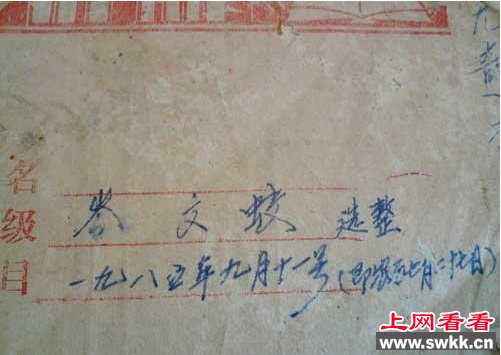 名 岑文蛟 造整
级
目 一九八五年九月十一号(即农历七月二十七日)
九
上网看看
www.swkk.cn